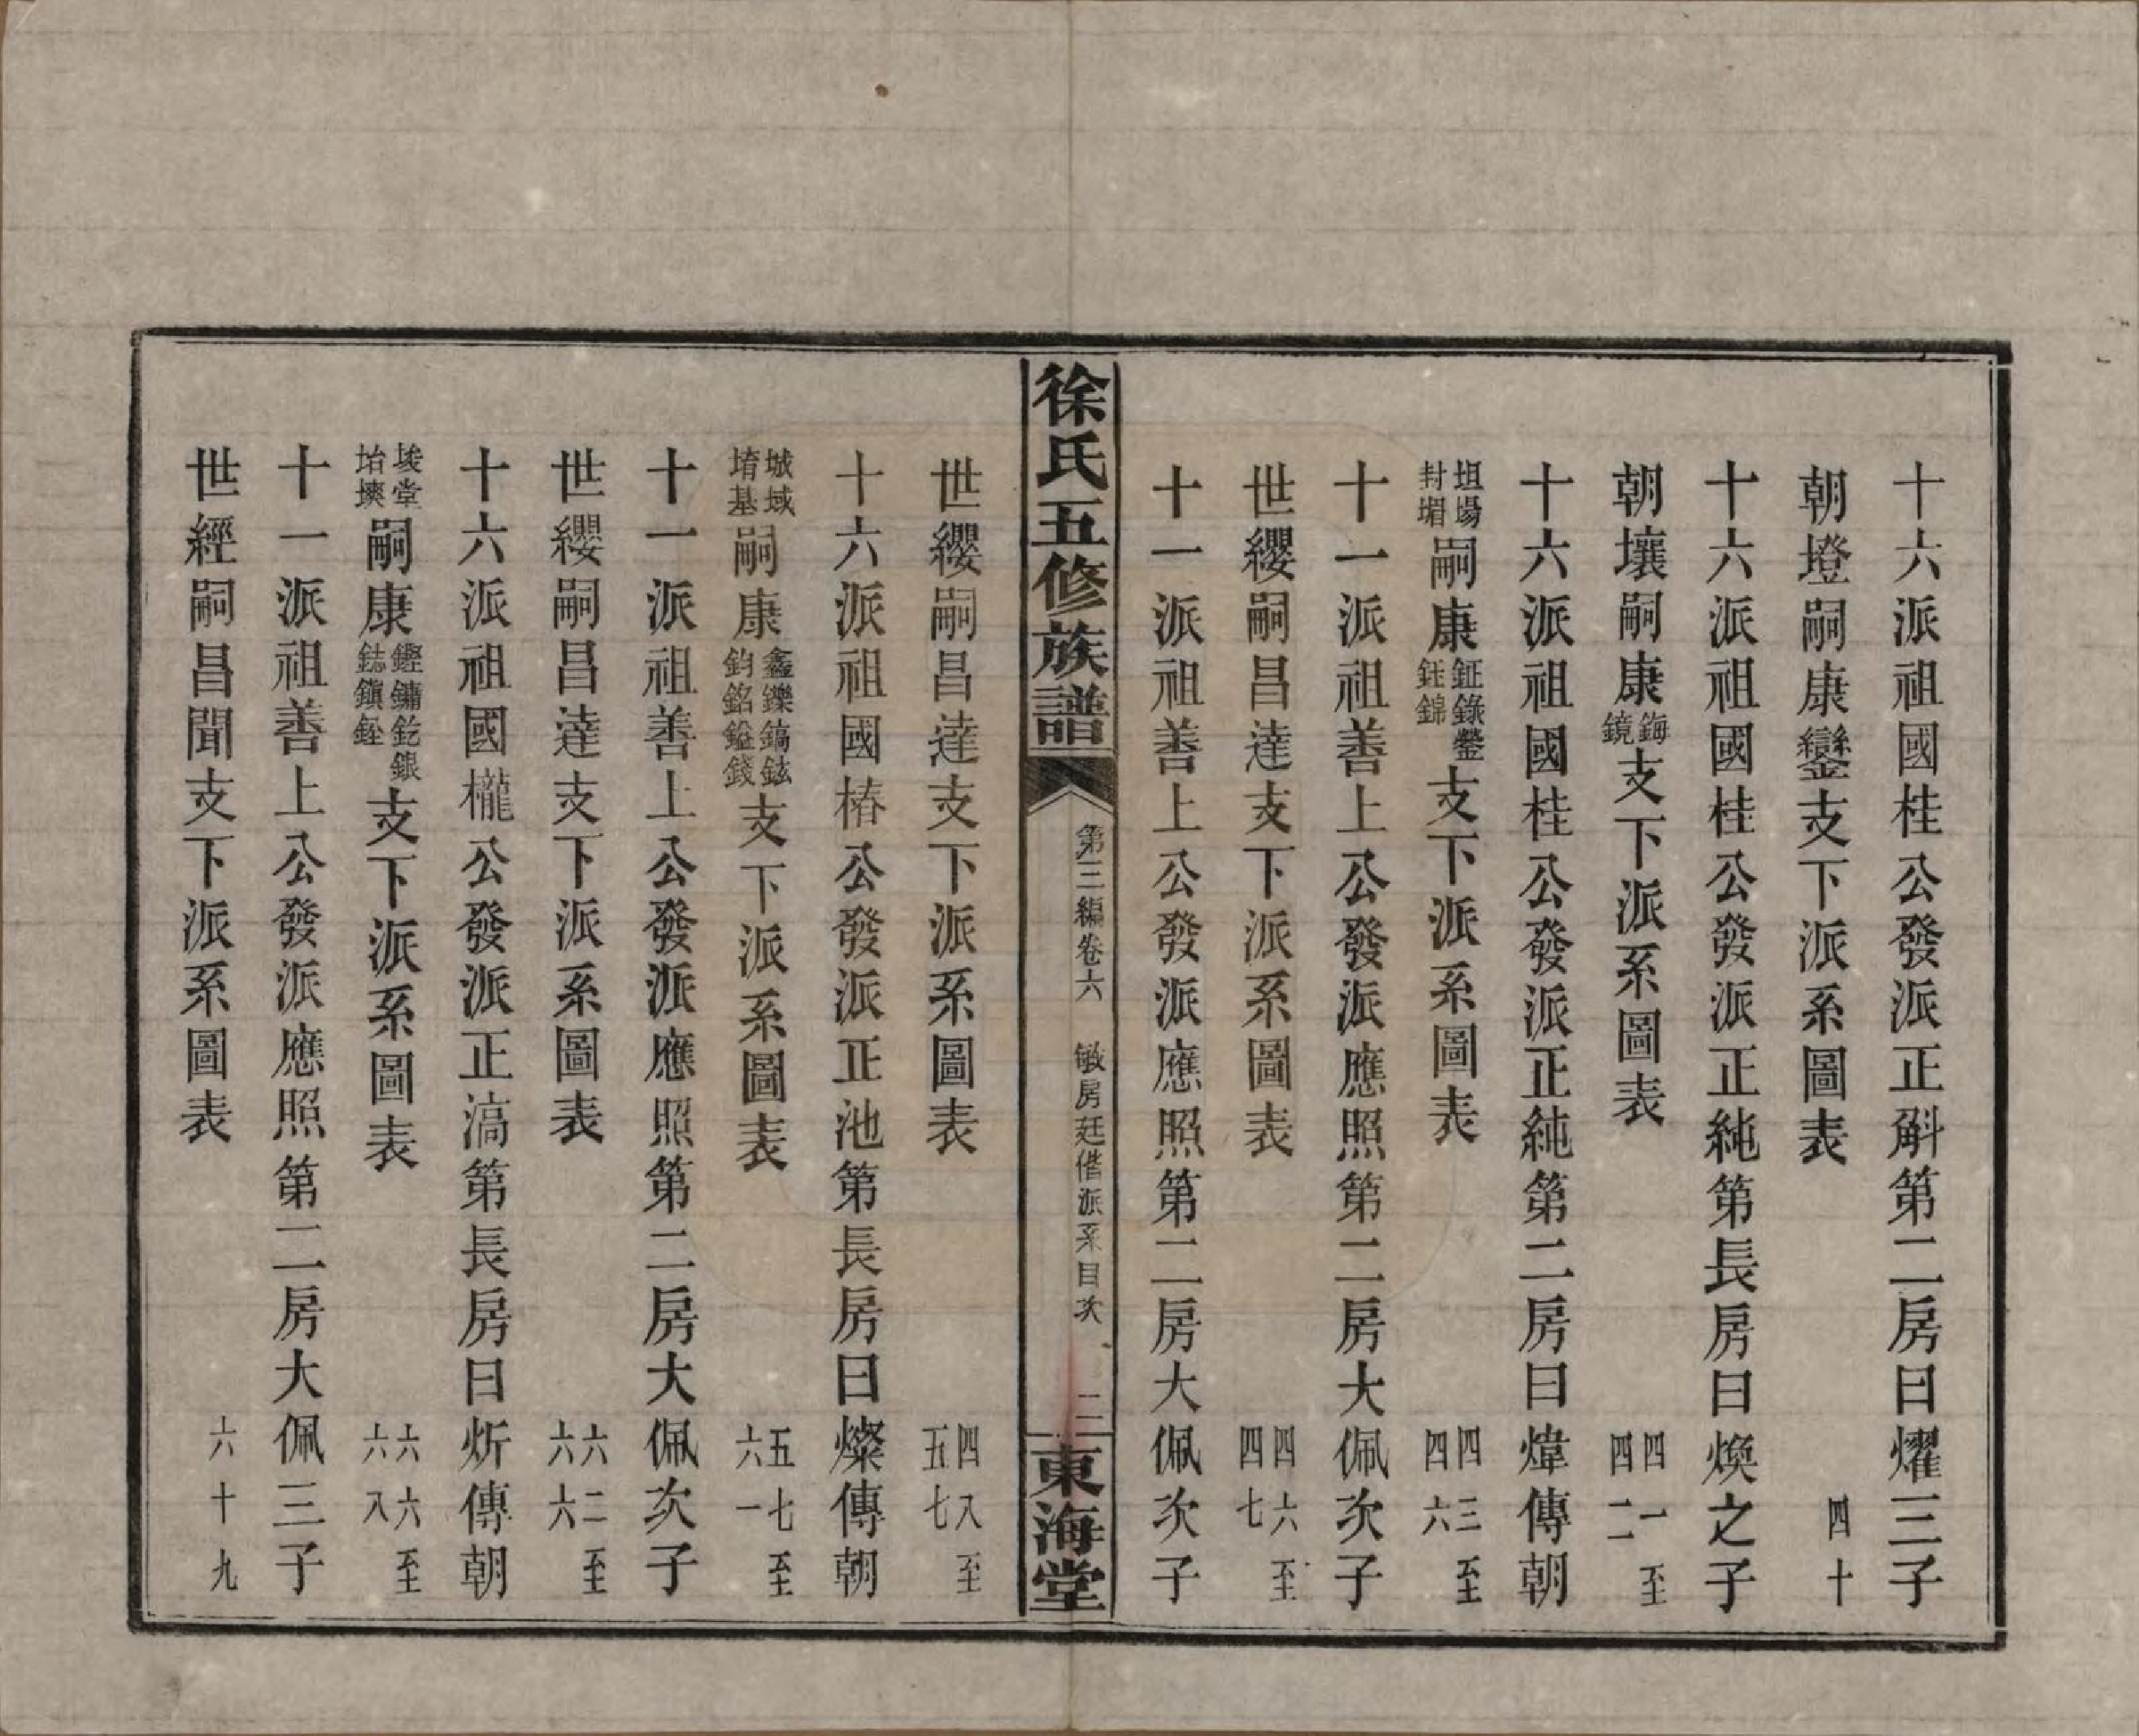 十六派祖國桂公發派正斛第二房曰燿三子
朝墱嗣康鑾支下派系圖表 四十
十六派祖國桂公發派正純第長房曰煥之子
朝壤嗣康鋂鏡支下派系圖表 四一至四二
十六派祖國桂公發派正純第二房曰煒傳朝
坦場封堳嗣康鉦錄鑾鈺錦支下派系圖表 四三至四六
十一派祖善上公發派應照第二房大佩次子
世纓嗣昌達支下派系圖表 四六至四七
十一派祖善上公發派應照第二房大佩次子
徐氏五修族譜 第三編卷六 敏房廷偕派系目次 二 東海堂
世纓嗣昌達支下派系圖表 四八至五七
十六派祖國椿公發派正池第長房曰燦傳朝
城域堉基嗣康鑫鑠鎬鉉鈞銘鎰錢支下派系圖表 五七至六一
十一派祖善上公發派應照第二房大佩次子
世纓嗣昌達支下派系圖表 六二至六六
十六派祖國櫳公發派正滈第長房曰炘傳朝
堎堂坮堧嗣康鏗鏞釳銀鋕鎮銓支下派系圖表 六六至六八
十一派祖善上公發派應照第二房大佩三子
世經嗣昌聞支下派系圖表 六十九